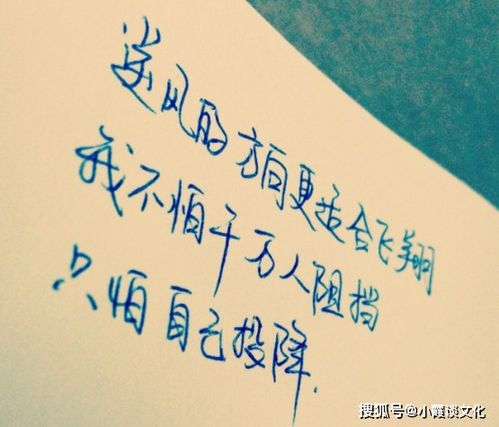 逆风的方向更适合飞翔
我不怕千万人阻挡
只怕自己投降.
搜狐号@小霞谈文化